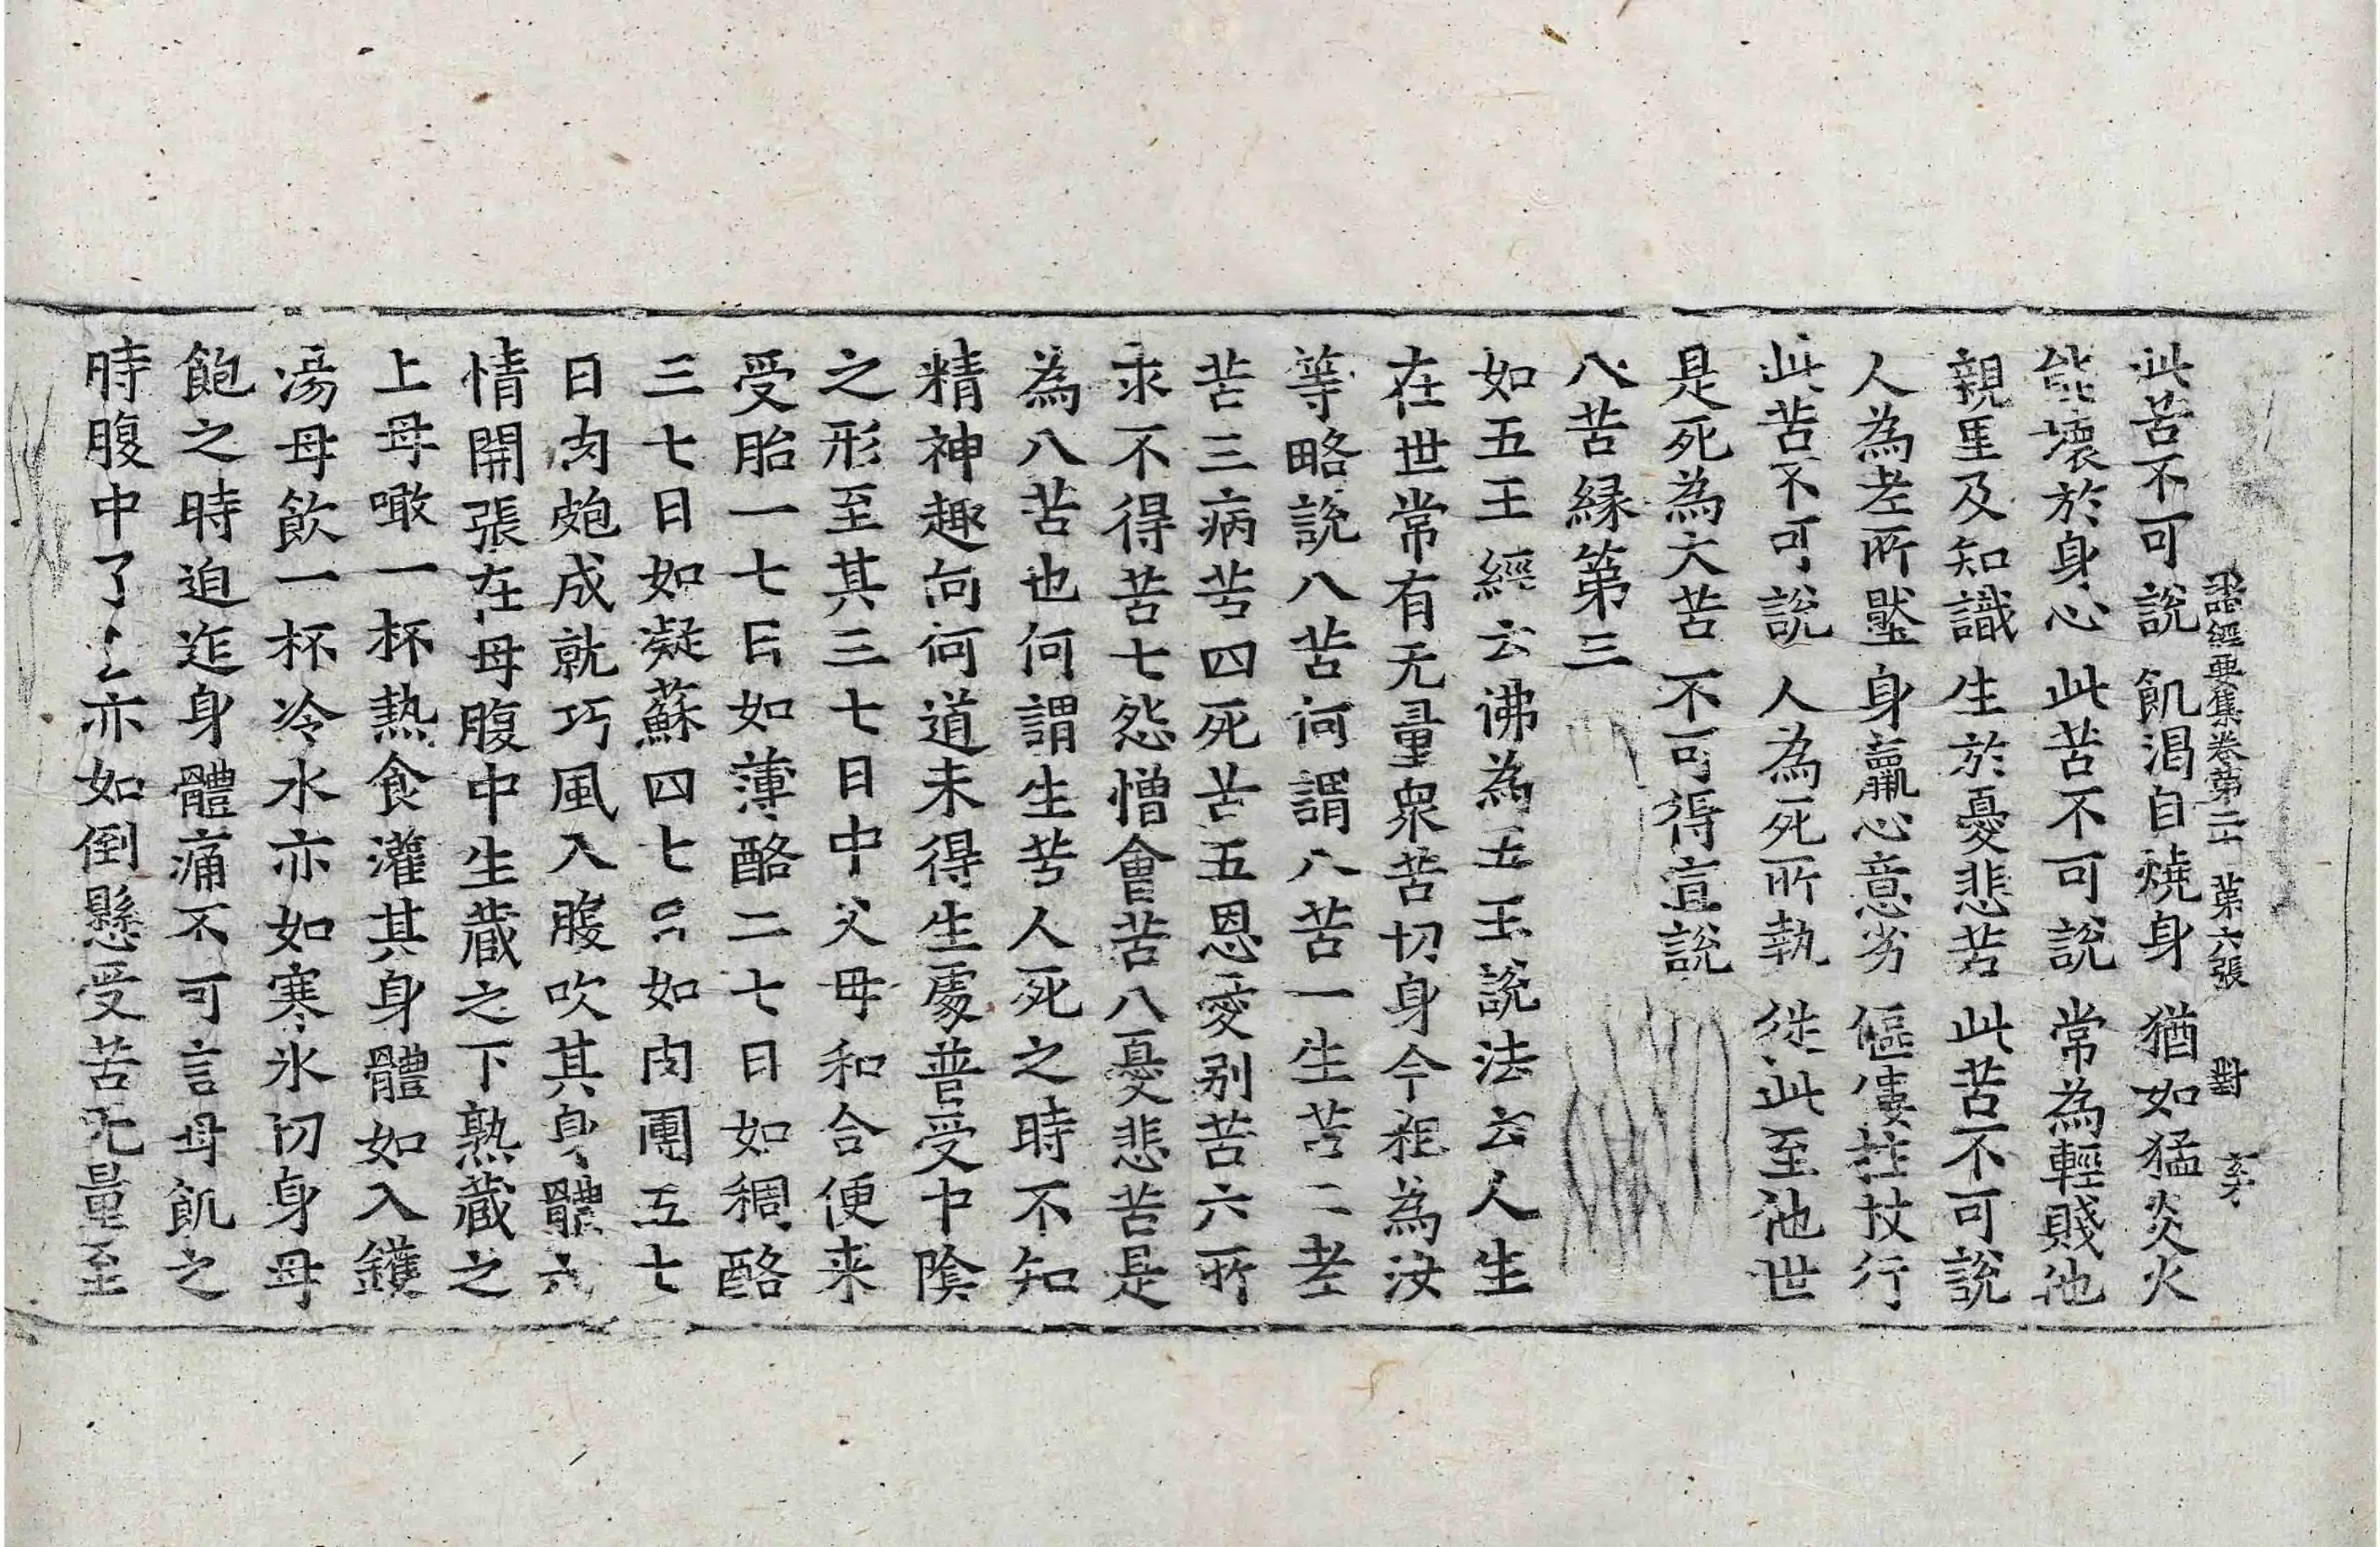 諸經要集卷第二十 第六張 對
此苦不可說 飢渴自燒身 猶如猛炎火
能壞於身心 此苦不可說 常為輕賤他
親里及知識 生於憂悲苦 此苦不可說
人為老所壓 身羸心意劣 傴僂拄杖行
此苦不可說 人為死所執 從此至他世
是死為大苦 不可得宣說
八苦緣第三
如五王經云佛為五王說法云人生
在世常有无量眾苦切身今粗為汝
等略說八苦何謂八苦一生苦二老
苦三病苦四死苦五恩愛別苦六所
求不得苦七怨憎會苦八憂悲苦是
為八苦也何謂生苦人死之時不知
精神趣向何道未得生處普受中陰
之形至其三七日中父母和合便来
受胎一七日如薄酪二七日如稠酪
三七日如凝蘇四七日如肉團五七
日肉皰成就巧風入腹吹其身體六
情開張在母腹中生蔵之下熟蔵之
上母噉一杯熱食灌其身體如入鑊
湯母飲一杯冷水亦如寒氷切身母
飽之時迫迮身體痛不可言母飢之
時腹中了〻亦如倒懸受苦无量至